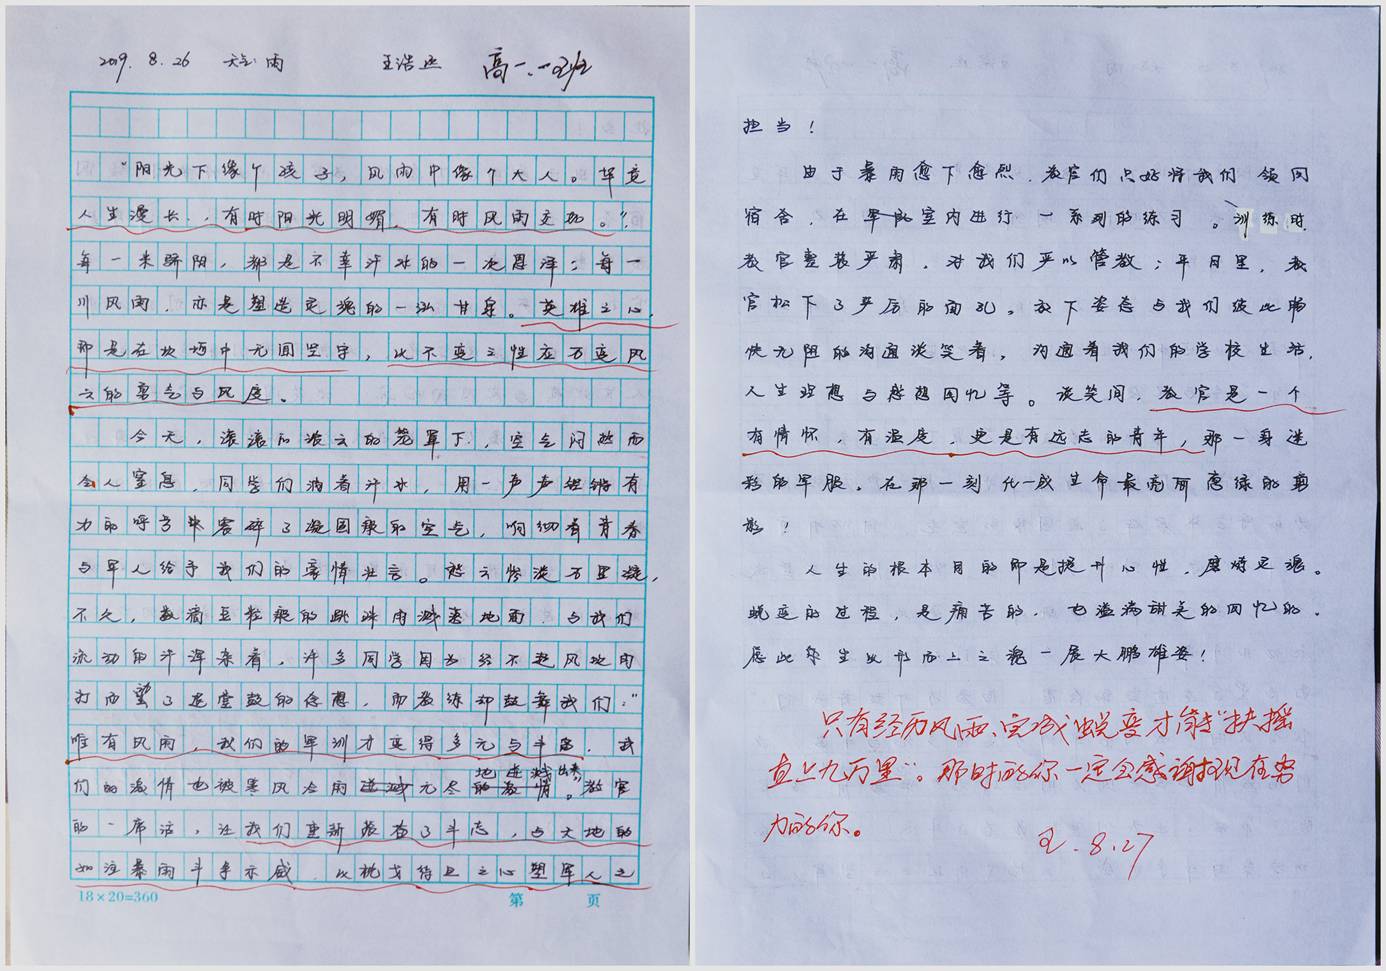 2019.8.26 天气:雨 王浩 高一.一班
"阳光下像个孩子,风雨中像个大人。毕竟
人生漫长,有时阳光明媚,有时风雨交加。"
每一米骄阳,都是不幸汗水的一次恩泽;每一
川风雨,亦是塑造灵魂的一泓甘泉。英雄之心,
即是在坎坷中无固坚守,以不变之性应万变风
云的勇气与风度。
今天,滚滚的浓云的笼罩下,空气闷热而
令人窒息,同学们淌着汗水,用一声声铿锵有
力的呼号来震碎了凝固般的空气,啊彻着青春
与军人给予我们的豪情壮言。愁云惨淡万里凝,
不久,数滴豆粒般的跳珠雨溅落地面,与我们
流动的汗浑杂着,许多同学因为经不起风吹雨
打而望了退堂鼓的信息,而教练却鼓舞我们:"
唯有风雨,我们的军训才变得多元与丰富。我
们的激情也被寒风冷雨无尽地迸溅出来"。教官
的一席话,让我们重新振奋了斗志,与大地的
如注暴雨斗争示威,以枕戈待旦之心塑军人之
18×20=360 第 页
担当!
由于暴雨愈下愈烈,教官们只好将我们领回
宿舍,在室内进行一系列的练习。训练时,
教官整装严肃,对我们严以管教;平日里,教
官松下了严厉的面孔。放下姿态与我们彼此畅
快无阻的沟通谈笑着,沟通着我们的学校生活,
人生理想与感想回忆等。谈笑间,教官是一个
有情怀,有温度,更是有远志的青年,那一身迷
彩的军服。在那一刻化成生命最高昂意绿的剪
影!
人生的根本目的即是提升心性,磨炼灵魂。
蜕变的过程,是痛苦的,也溢满甜美的回忆的。
愿此学生以形而上之魂一展大鹏雄姿!
只有经历风雨、完成蜕变才能"扶摇
直上九万里"。那时的你一定会感谢现在努
力的你。
王.8.27